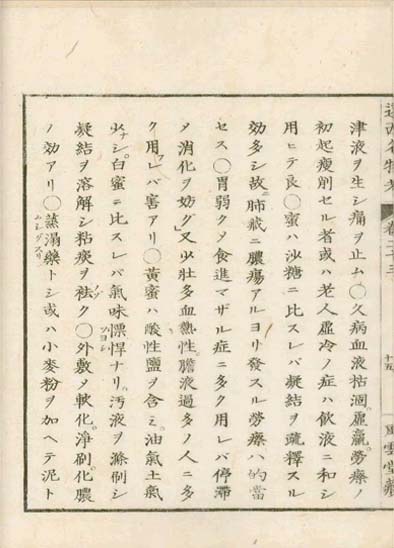 遠西名物考 卷三十三 十五 風雲堂藏
津液ヲ生シ痛ヲ止ム○久病血液枯涸。虛羸。勞療ノ
初起瘦削セル者或ハ老人虛冷ノ症ハ飲液ニ和シ
用ヒテ良○蜜ハ沙糖ニ比スレバ凝結ヲ疏釋スル
效多シ故ニ肺蕺ニ膿瘍アルヨリ發スル勞療ハ的當
セス○胃弱クメ食進マザル症ニ多ク用レバ停滯
メ消化ヲ妨グ又少壯多血熱性。膽液過多ノ人ニ多
ク用フレバ害アリ○黃蜜ハ酸性鹽ヲ含ミ。油氣土氣
少ナシ。白蜜ニ比スレバ氣味慓悍ナリ。汚液ヲ滌刷シ
凝結ヲ溶解シ粘痰ヲ袪ク○外敷メ軟化。淨刷化膿
ノ效アリ○蒸溻藥トシ或ハ小麥粉ヲ加ヘテ泥ト